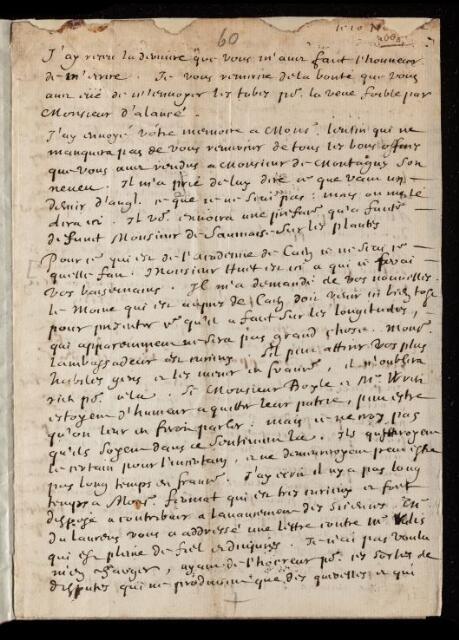 60
J'ay receu la derniere que vous m'avez faict l'honneur
de m'escrire. Je vous remercie de la bonté que vous
avez eüe de m'envoyer les tubes po. la veue foible par
Monsieur d'alancé.
J'ay envoyé vôtre memoire a Mons. qui ne
manquera pas de vous remercier de tous les bons offices
que vous avez rendus a Monsieur de Montaguy son
neveu. Il m'a prié de luy dire ce que vaut un
denier d'angl. ce que je ne sçai pas: mais on me le
dira ici. Il vo. envoira une preface qu'a faicte
defunct Monsieur de Saumaise sur les plantes
Pour ce qui est de l'academie de Caen je ne sçai ce
qu'elle fait. Monsieur Huet est ici a qui je ferai
vos baisemains. Il m'a demandé de vos nouvelles.
Le Moine qui est aupres de Caen doit venir ici bien tost
pour presenter ce qu'il a faict sur les longitudes,
qui apparemment ne sera pas grand chose. Mons.
l'ambassadeur est curieux. S'il peut attirer vos plus
habiles gens et les mener en france, il n'oubliera
rien po. cela. Si Monsieur Boyle et Mr. Wren
estoyent d'humeur a quitter leur patrie, peut estre
qu'on leur en feroit parler: mais je ne croy pas
qu'ils soyent dans ce sentiment la. Ils quitteroyent
le certain pour l'incertain, et ne demeureroyent peut estre
pas long temps en france. J'ay ecrit il n'y a pas long
temps a Mons. fermat qui est tres curieux et fort
disposé a contribuer a l'avancement des sciences. Mr.
du laurens vous a addressé une lettre contre Mr. Wallis
qui est pleine de fiel et d'injures. Je n'ai pas voulu
m'en charger, ayant de l'horreur po. ces sortes de
disputes qui ne produisent que des querelles et qui